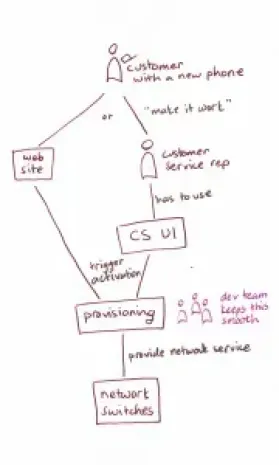 customer
with a new phone
or
"make it work"
web
site
customer
service rep
has to use
CS UI
trigger
activation
provisioning
dev team
keeps this
smooth
provide network service
network
switches